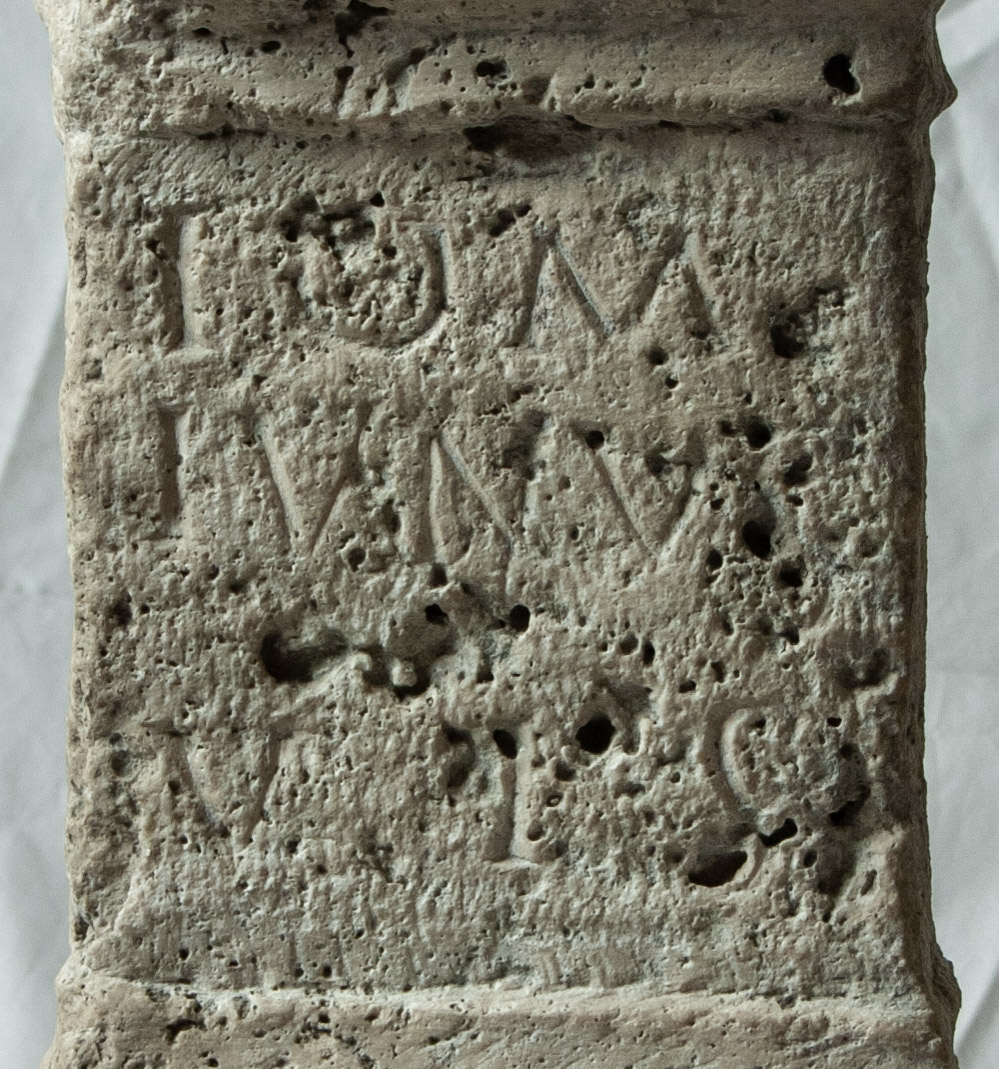 IOM
IVNV
V T C